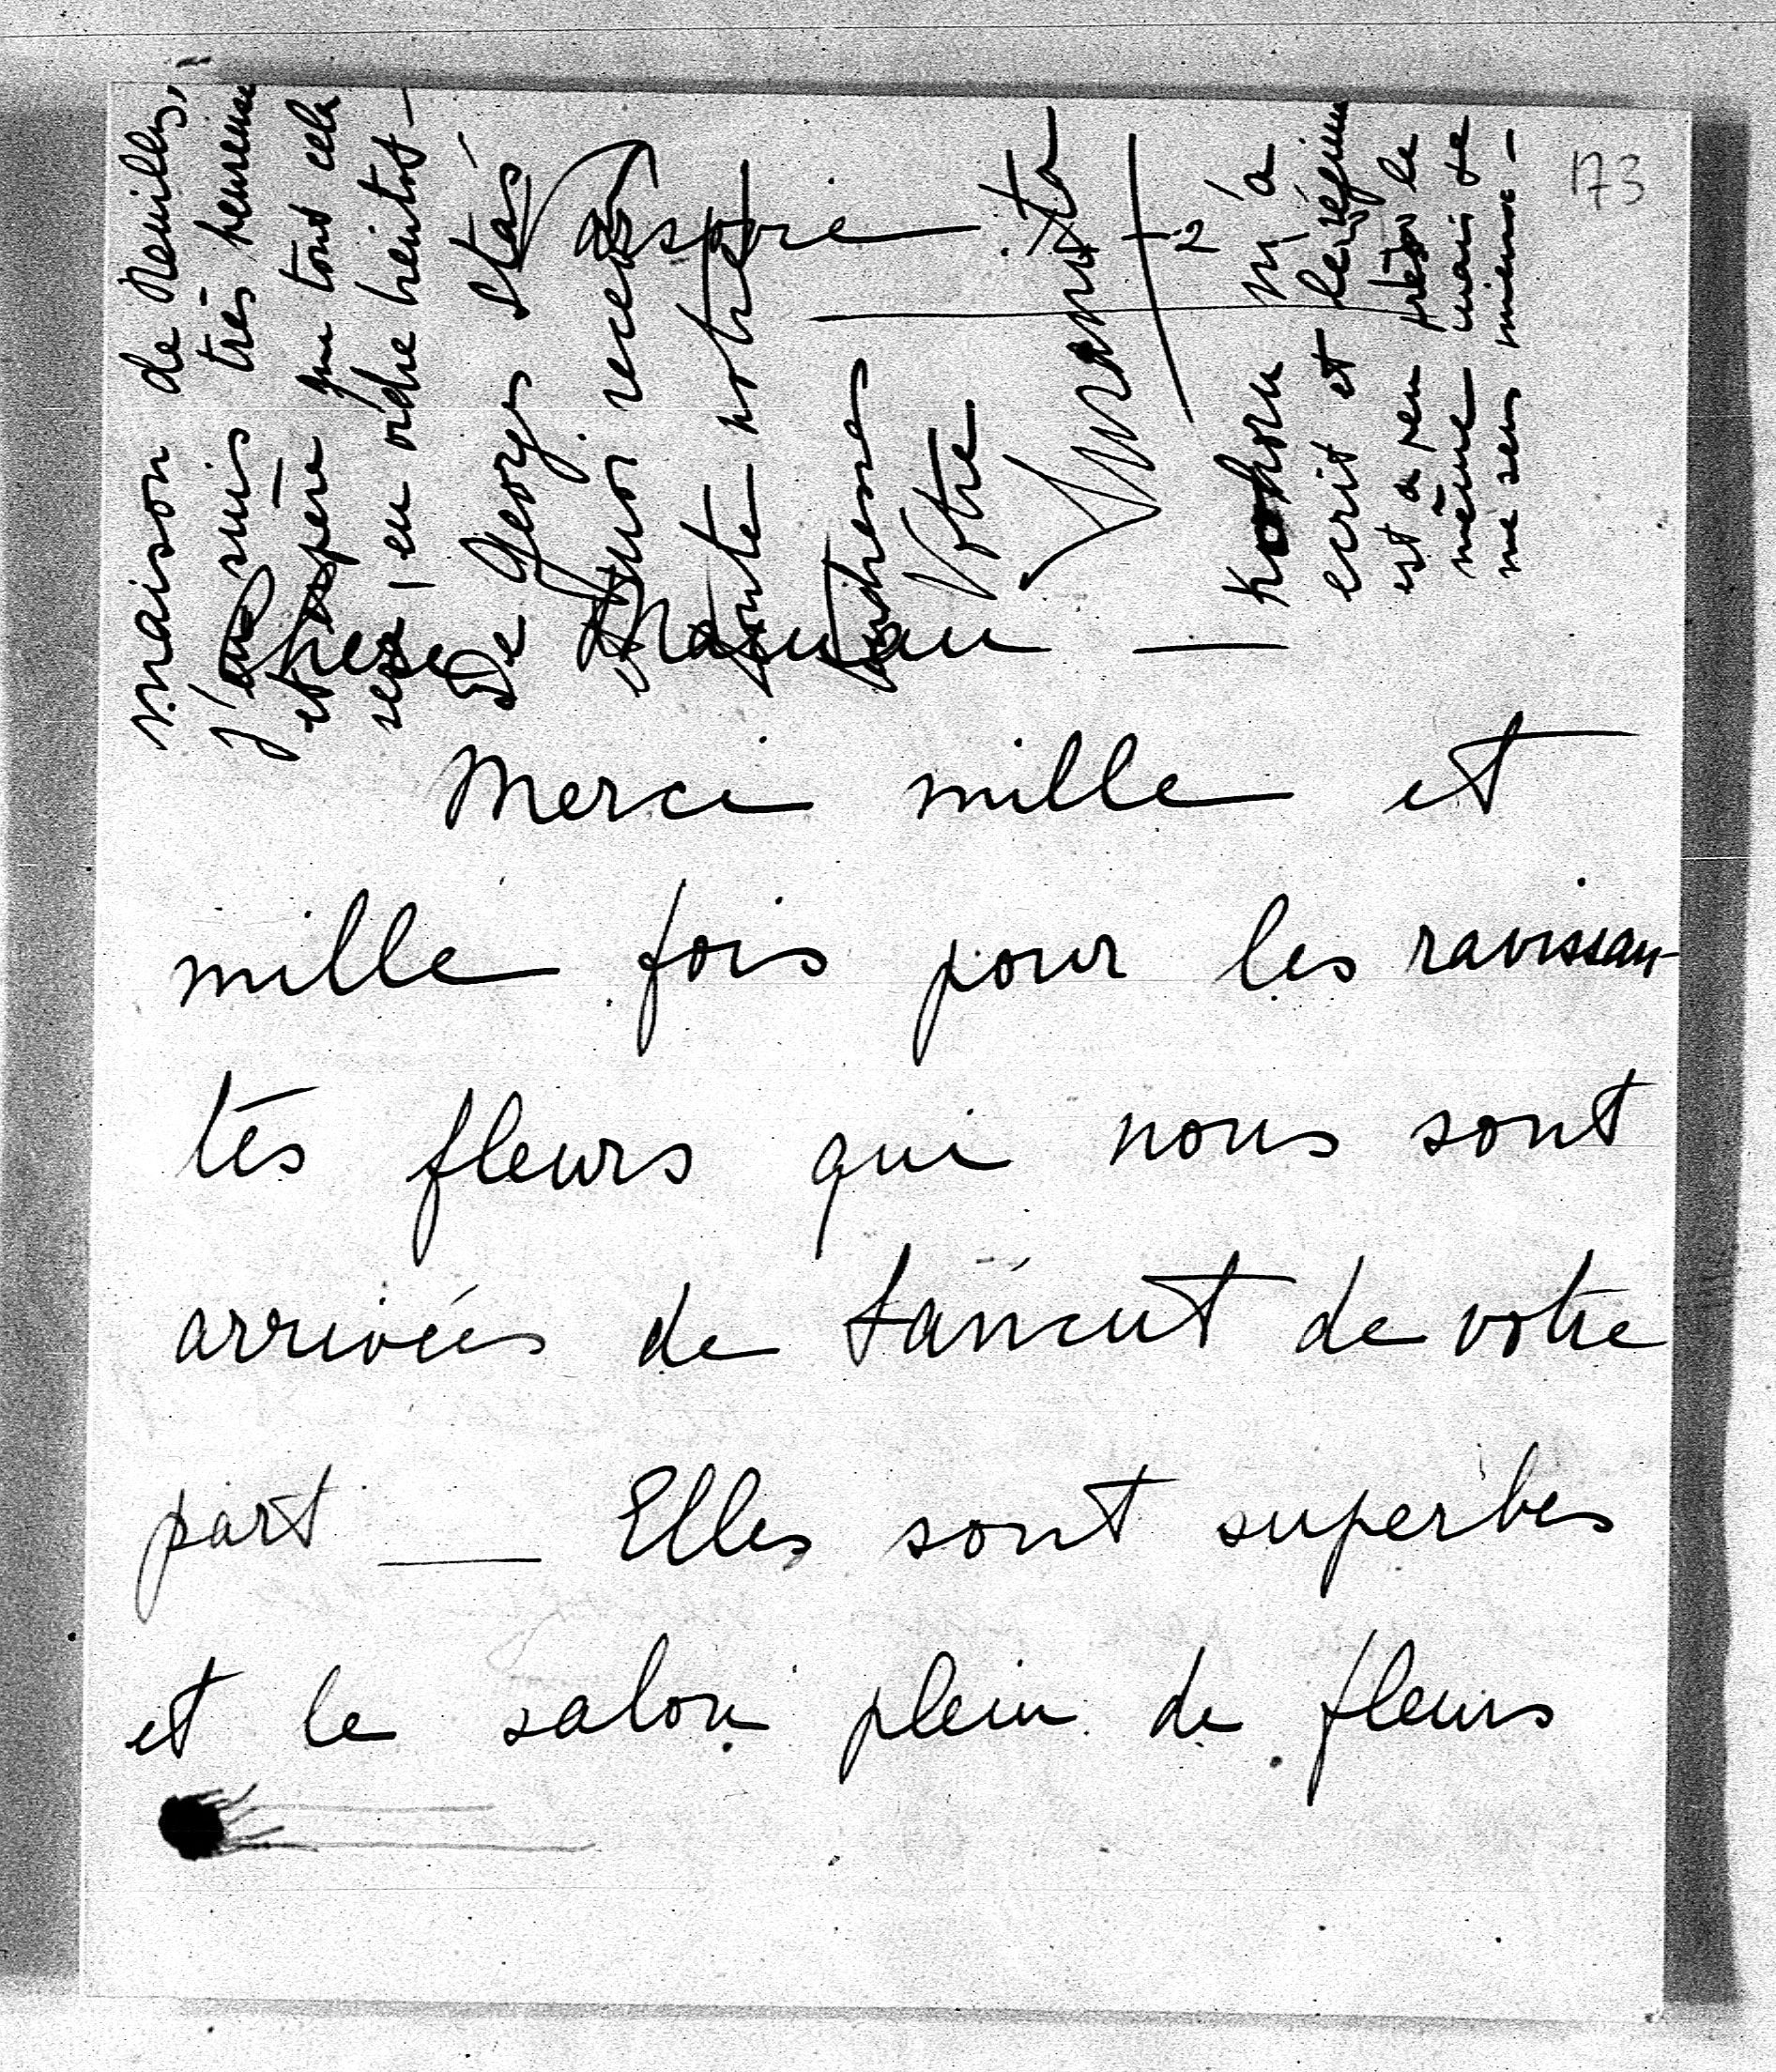 173
Chère Maman —
Merci mille et
mille fois pour les ravissan-
tes fleurs qui nous sont
arrivées de Łańcut de votre
part — Elles sont superbes
et le salon plein de fleurs
maison de Neuilly,
J'en suis très heureuse
et espère que tout cela
sera en ordre bientôt —
De Georges Stas
notre
Votre
m'a
écrit et
est à peu près le
même mais je
me sens mieux —